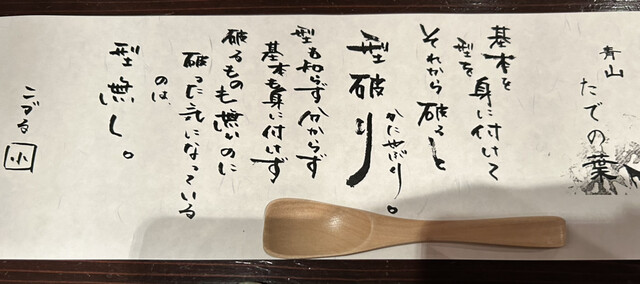 青山
たでの葉
基本と
型を
身に付けて
それから破ると
型破り
かたやぶり。
型も知らず分からず
基本も身に付けず
破るものも無いのに
破った気になっている
のは、
型無し。
こづる
小